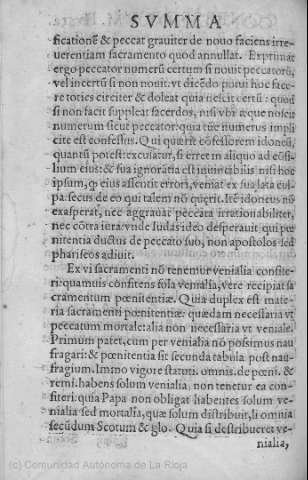 SVMMA
ficationē & peccat grauiter de nouo faciens irre-
uerentiam sacramento quod annullat. Exprimat
ergo peccator numerū certum si nouit peccatorū,
vel incertū si non nouit. vt dicēdo potui hoc face-
re toties circiter & doleat quia nescit certū: quod
si non facit suppleat sacerdos, nisi vbi æque nouit
numerum sicut peccator: quia tūc numerus impli
cite est confessus. Qui quærit cōfessorem idoneū,
quantū potest: excusatur, si erret in aliquo ad cōsi-
lium eius: & sua ignorātia est inuincibilis nisi hoc
ipsum, q̄ eius assentit errori, veniat ex sua lata cul-
pa. secus de eo qui talem nō quęrit. Itē idoneus nō
exasperat, nec aggrauat peccata irrationabiliter,
nec cōtra iura: vnde Iudas ideo desperauit qui pœ
nitentia ductus de peccato suo, non apostolos sed
phariseos adiuit.
Ex vi sacramenti nō tenemur venialia confite-
ri: quamuis confitens sola venialia, vere recipiat sa
cramentum pœnitentiæ. Quia duplex est mate-
ria sacramenti pœnitentiæ: quædam necessaria vt
peccatum mortale: alia non necessaria vt veniale.
Primum patet, cum per venialia nō possimus nau
fragari: & pœnitentia sit secunda tabula post nau-
fragium. Immo vigore statuti. omnis. de pœni. &
remi. habens solum venialia, non tenetur ea con-
fiteri. quia Papa non obligat habentes solum ve-
nialia sed mortalia, quæ solum distribuit, li omnia
secūdum Scotum & glo. Quia si distribueret ve-
nialia,
(c) Comunidad Autónoma de La Rioja